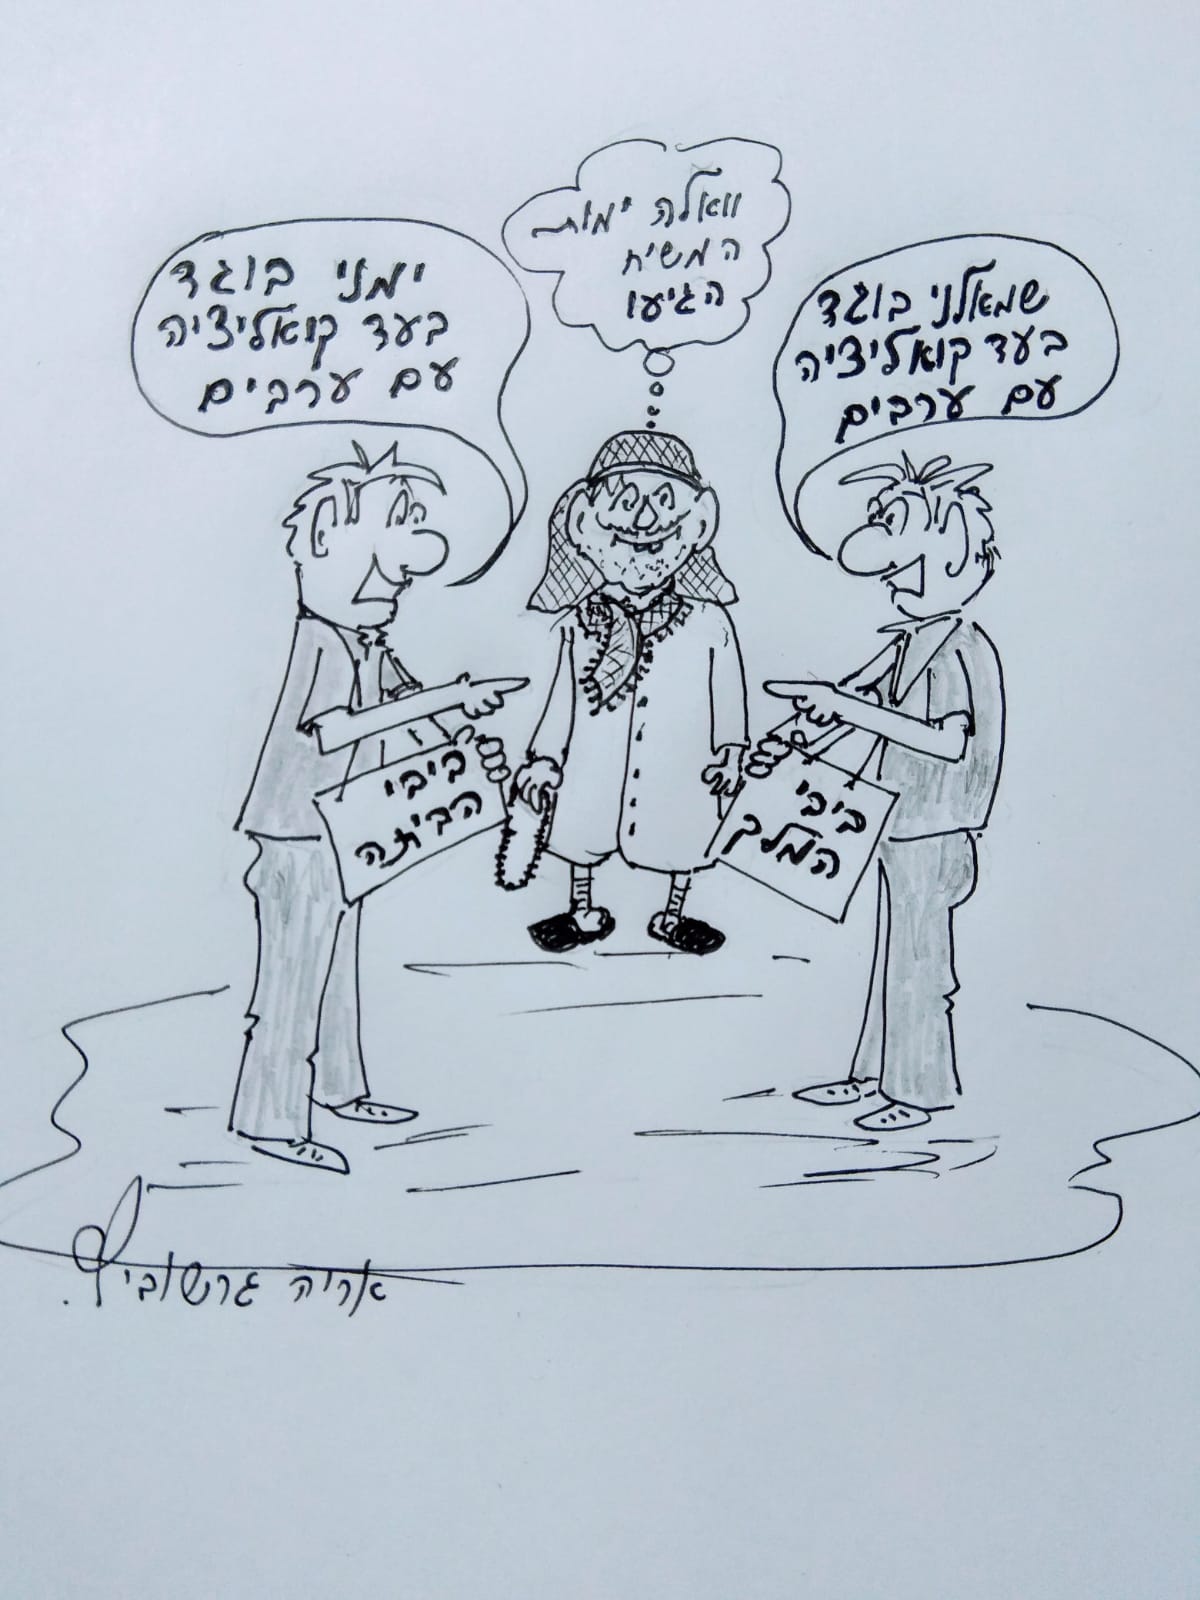 שמאלני בוגד
בעד קואליציה
עם ערבים
וואלה ימות
המשיח
הגיעו
ימני בוגד
בעד קואליציה
עם ערבים
ביבי
המלך
ביבי
הביתה
אריה גרשוביץ